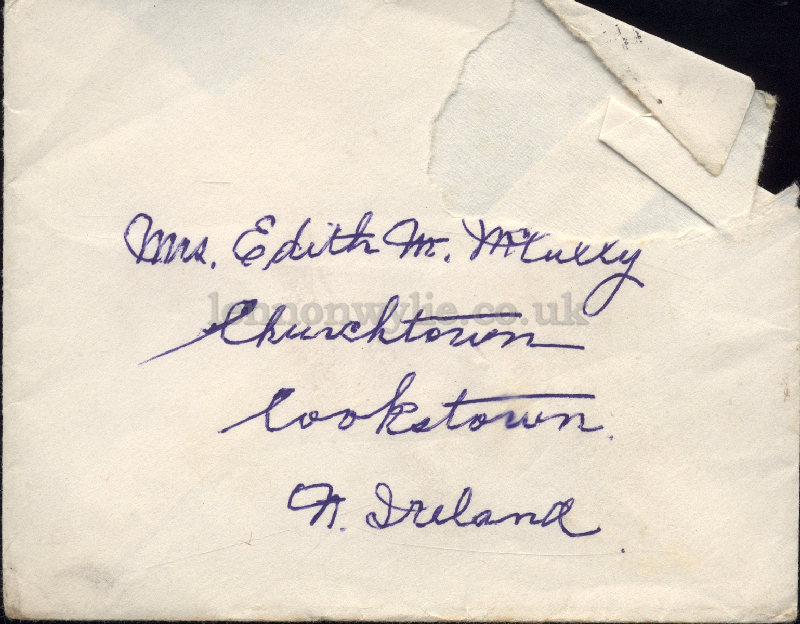 Mrs. Edith M. McCully
lennonwylie.co.uk
Churchtown
Cookstown.
N. Ireland.